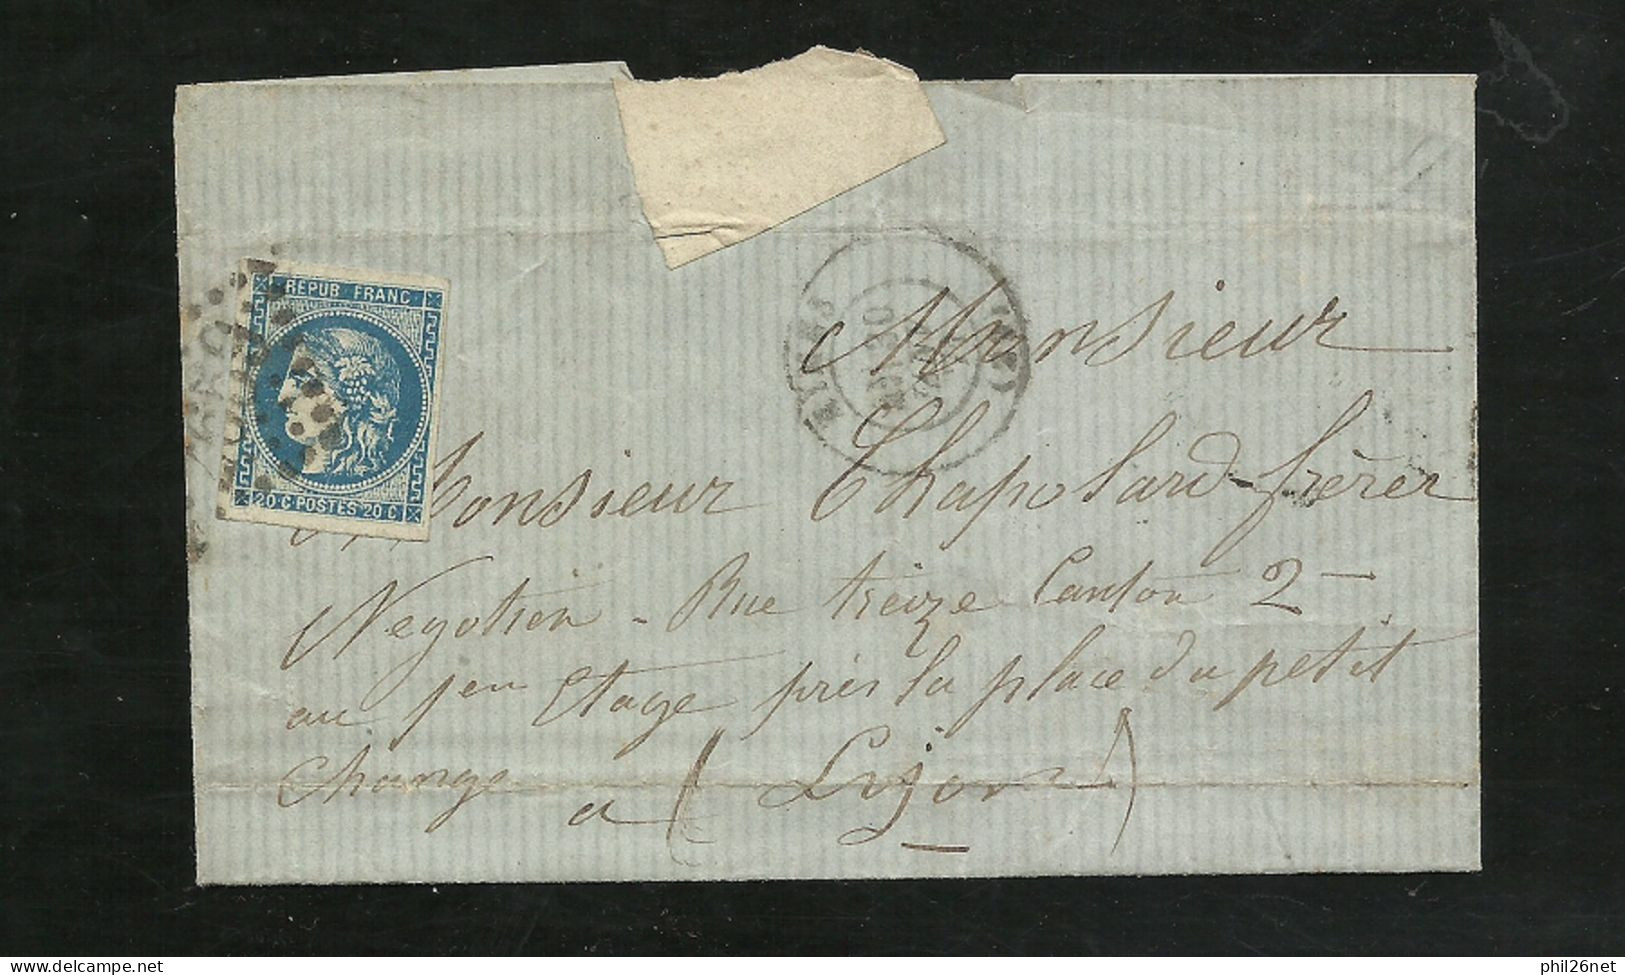 REPUB FRANC
20 C POSTES 20 C
Monsieur
Monsieur Chapolard frères
Negotien - Rue treize Canton 2 -
au 1er Etage près la place du petit
Change a ( Lyon )
phil26net